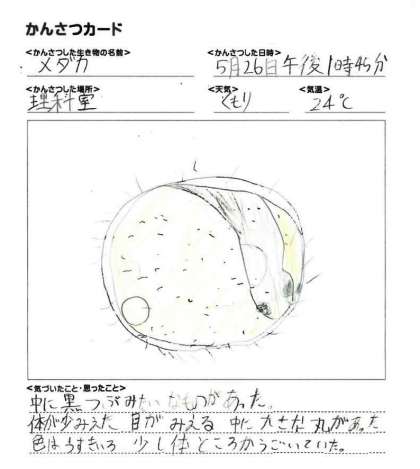 かんさつカード
<かんさつした生き物の名前> <かんさつした日時>
メダカ 5月26日午後1時45分
<かんさつした場所> <天気> <気温>
理科室 くもり 24℃
<気づいたこと・思ったこと>
中に黒つぶみたいなものがあった。
体が少みえた 目がみえる 中に大きな丸があった
色はうすきいろ 少し体ところがうごいていた。